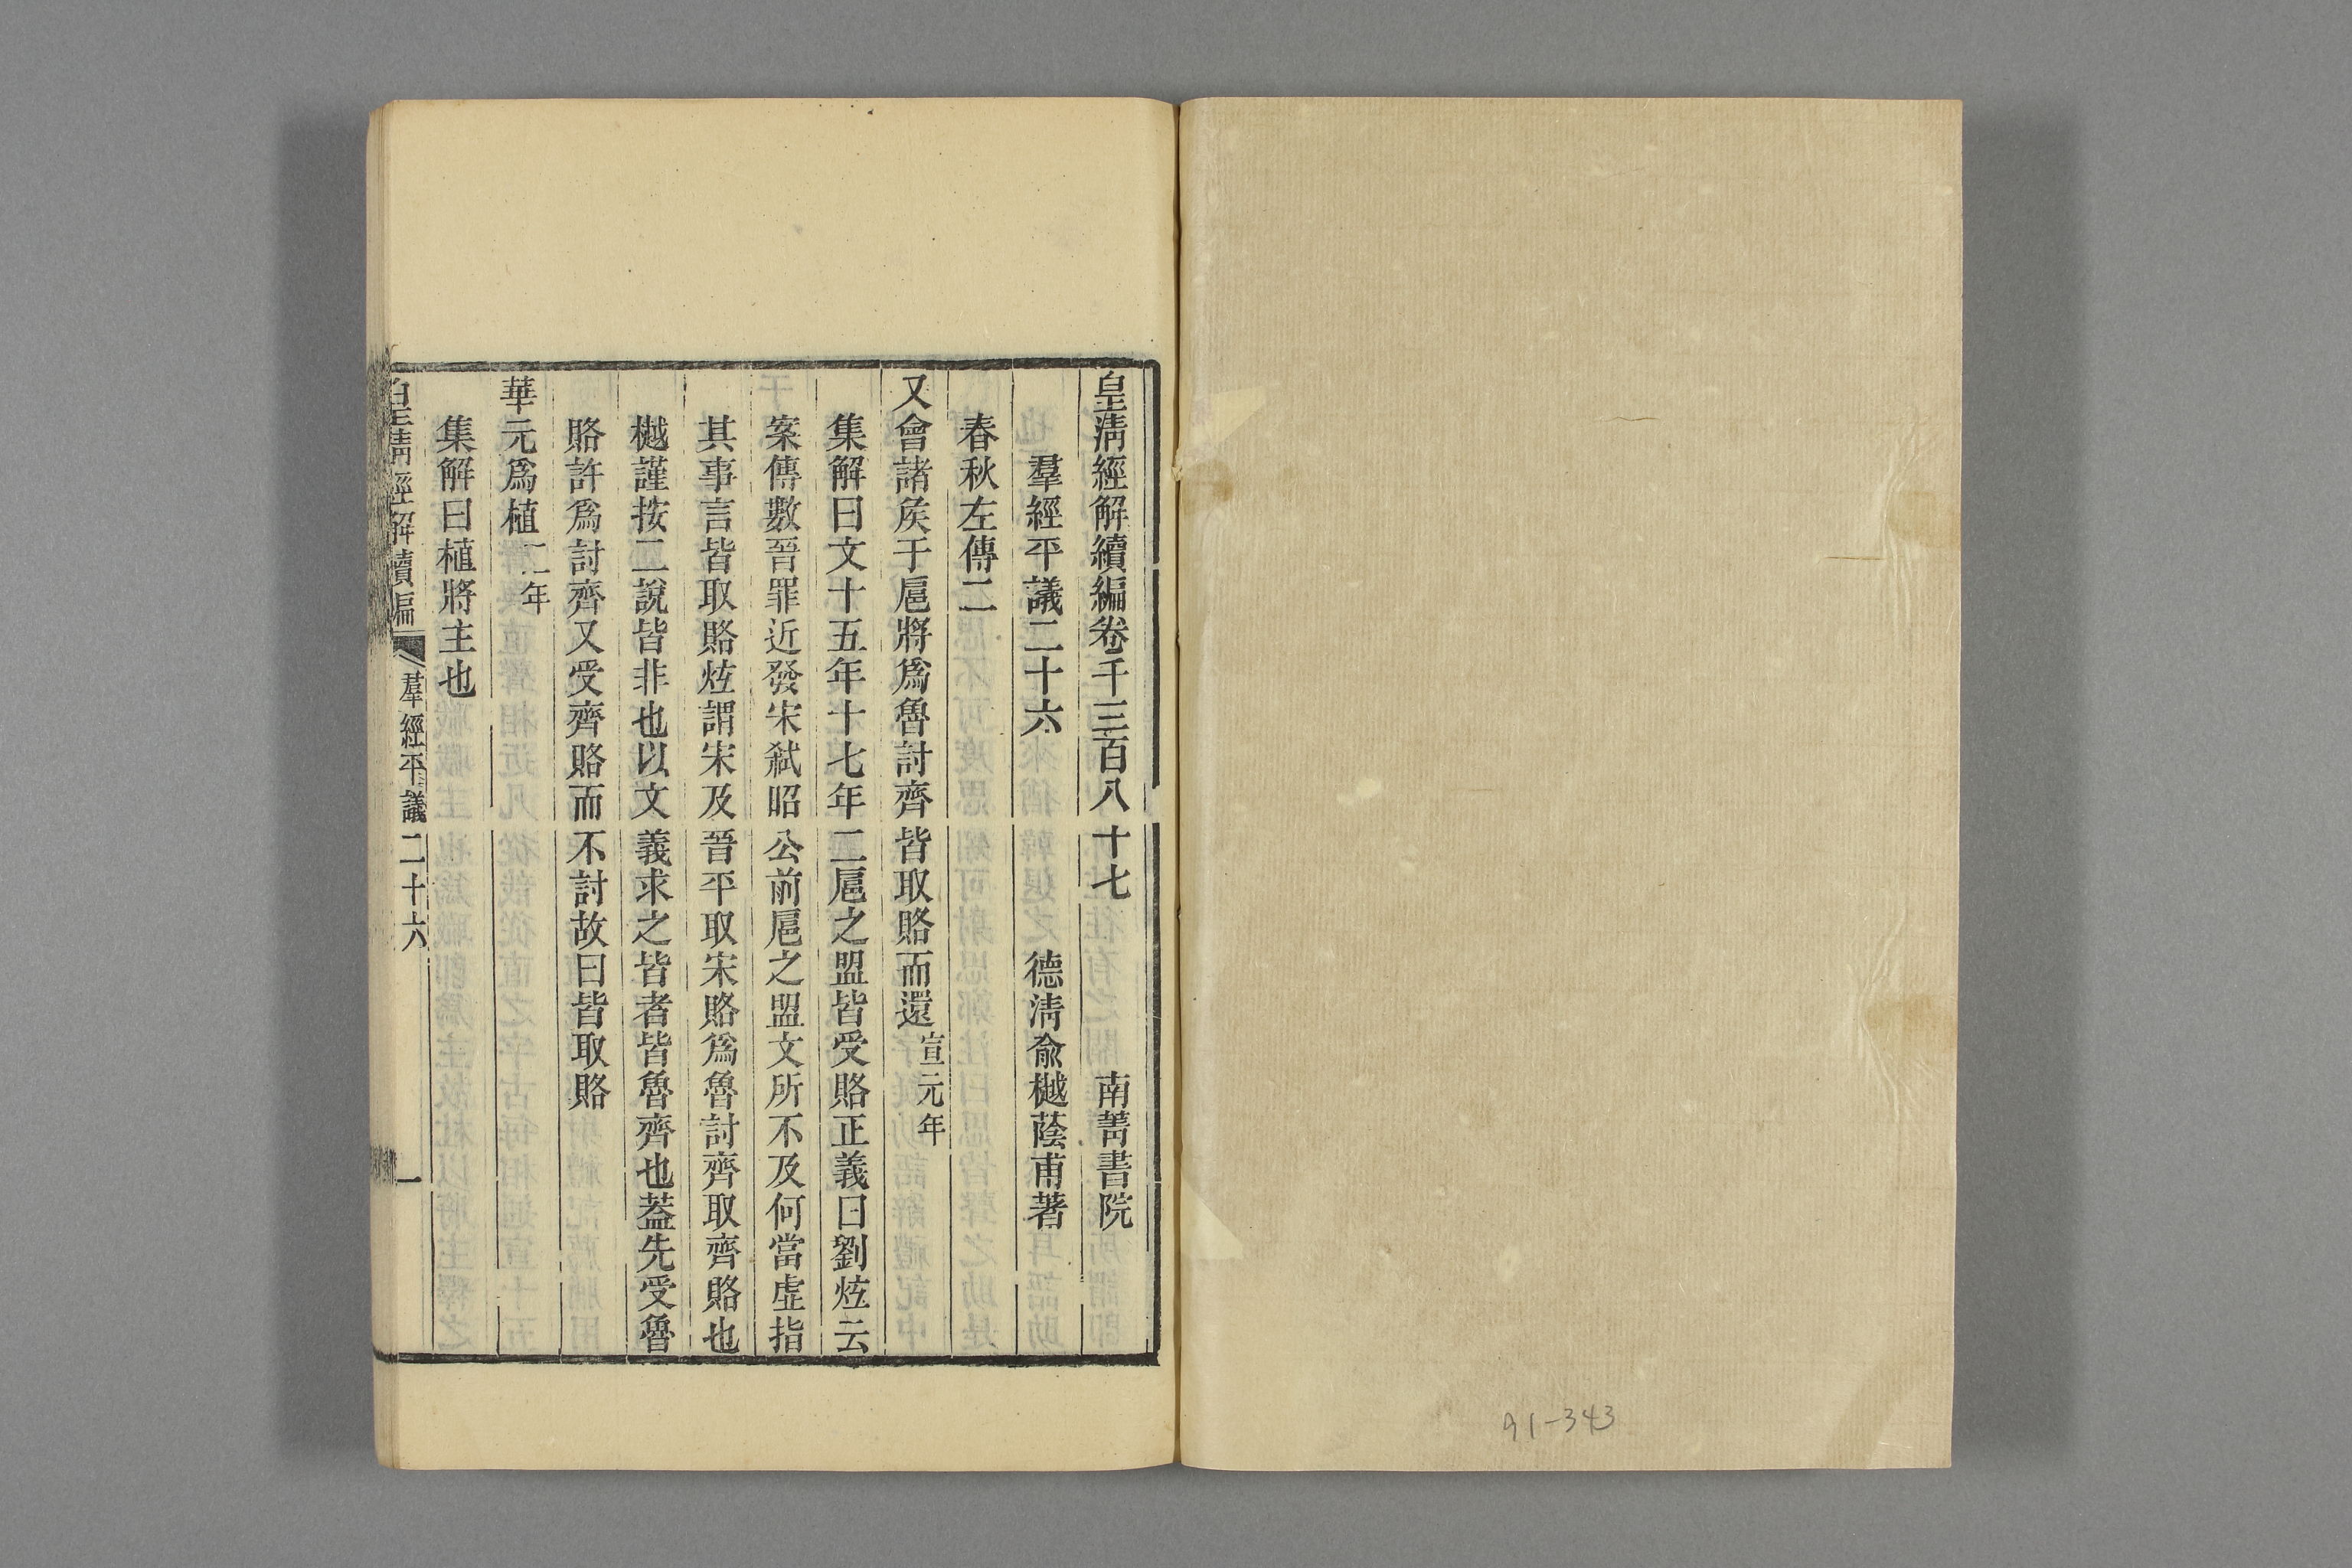 皇淸經解續編卷千三百八十七　南菁書院
羣經平議二十六　德淸俞樾蔭甫著
春秋左傳二
又會諸矦于扈將爲魯討齊皆取賂而還宣元年
集解曰文十五年十七年二扈之盟皆受賂正義曰劉炫云
案傳數晉罪近發宋弑昭公前扈之盟文所不及何當虛指
其事言皆取賂炫謂宋及晉平取宋賂爲魯討齊取齊賂也
樾謹按二說皆非也以文義求之皆者皆魯齊也葢先受魯
賂許爲討齊又受齊賂而不討故曰皆取賂
華元爲植二年
集解曰植將主也
皇淸經解續編　羣經平議二十六　一
91-343